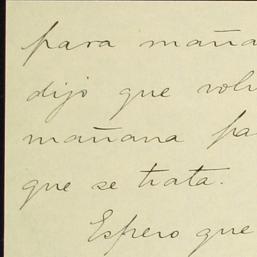 para maña
dijo que volv
mañana pa
que se trata.
Espero que